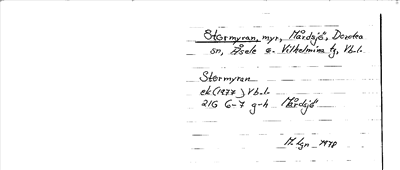 Stormyran, myr, Mårdsjö, Dorotea
sn, Åsele o. Vilhelmina tg, Vb.l.
Stormyran
ek (1977) Vb.l.
21G 6-7 g-h Mårdsjö
1978